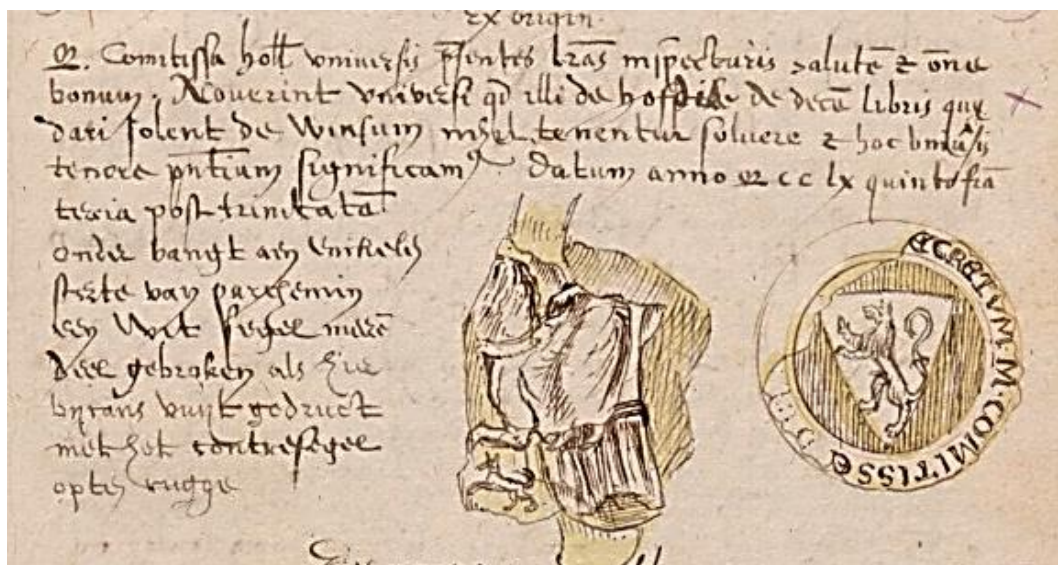 Ex origin.
M. Comitissa Holl vniuersis p̄sentes l̄ras inspecturis salutē & om̄e
bonum. Nouerint vniuersi qd illi de de decē libris que
dari solent de Winsum tenentur soluere & hoc
tenore p̄ntium significam9. Datum anno M CC lx quinto
feria post trinitatē.
onder hangt aen enckele
sterte van parchemin
een Wit segel meerē
deel gebroken als hie
vuyt gedruct
met het contresegel
opten rugge
ECRETVM·M·COMITISSE